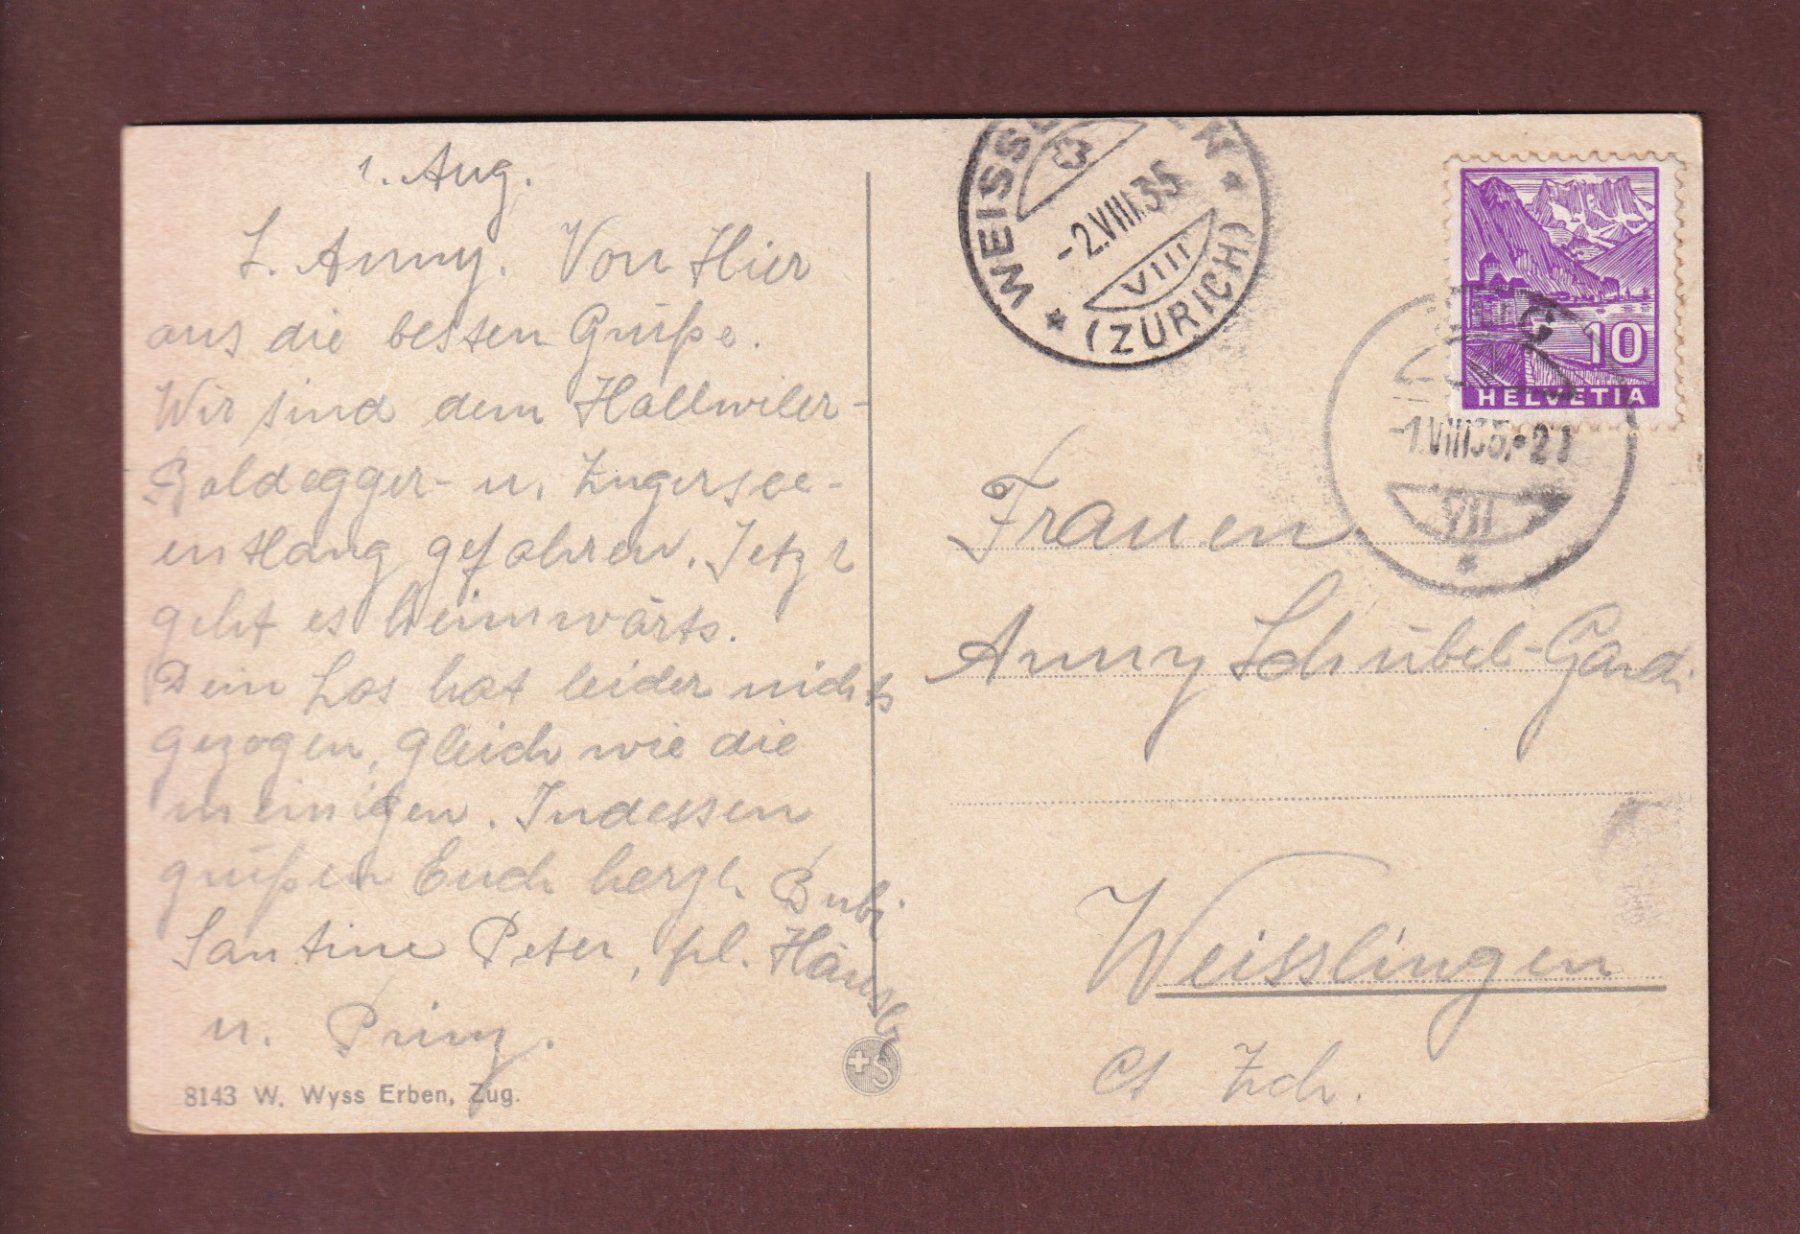 1. Aug.
L. Anny. Von Hier
aus die besten Grüße.
Wir sind dem Hallwiler-
Baldegger- u. Zugersee-
entlang gefahren. Jetzt
geht es heimwärts.
Dein Los hat leider nichts
gezogen, gleich wie die
meinigen. Indessen
grüßen Euch herzl. Bubi
Peter, Hänsli
u. Prinz.
8143 W. Wyss Erben, Zug.
+S
WEISS
-2.VIII.35
VIII
(ZÜRICH)
10
HELVETIA
-1.VIII35.-21
VII
Frauen
Anny Schübel-
Weisslingen
Ct Zch.